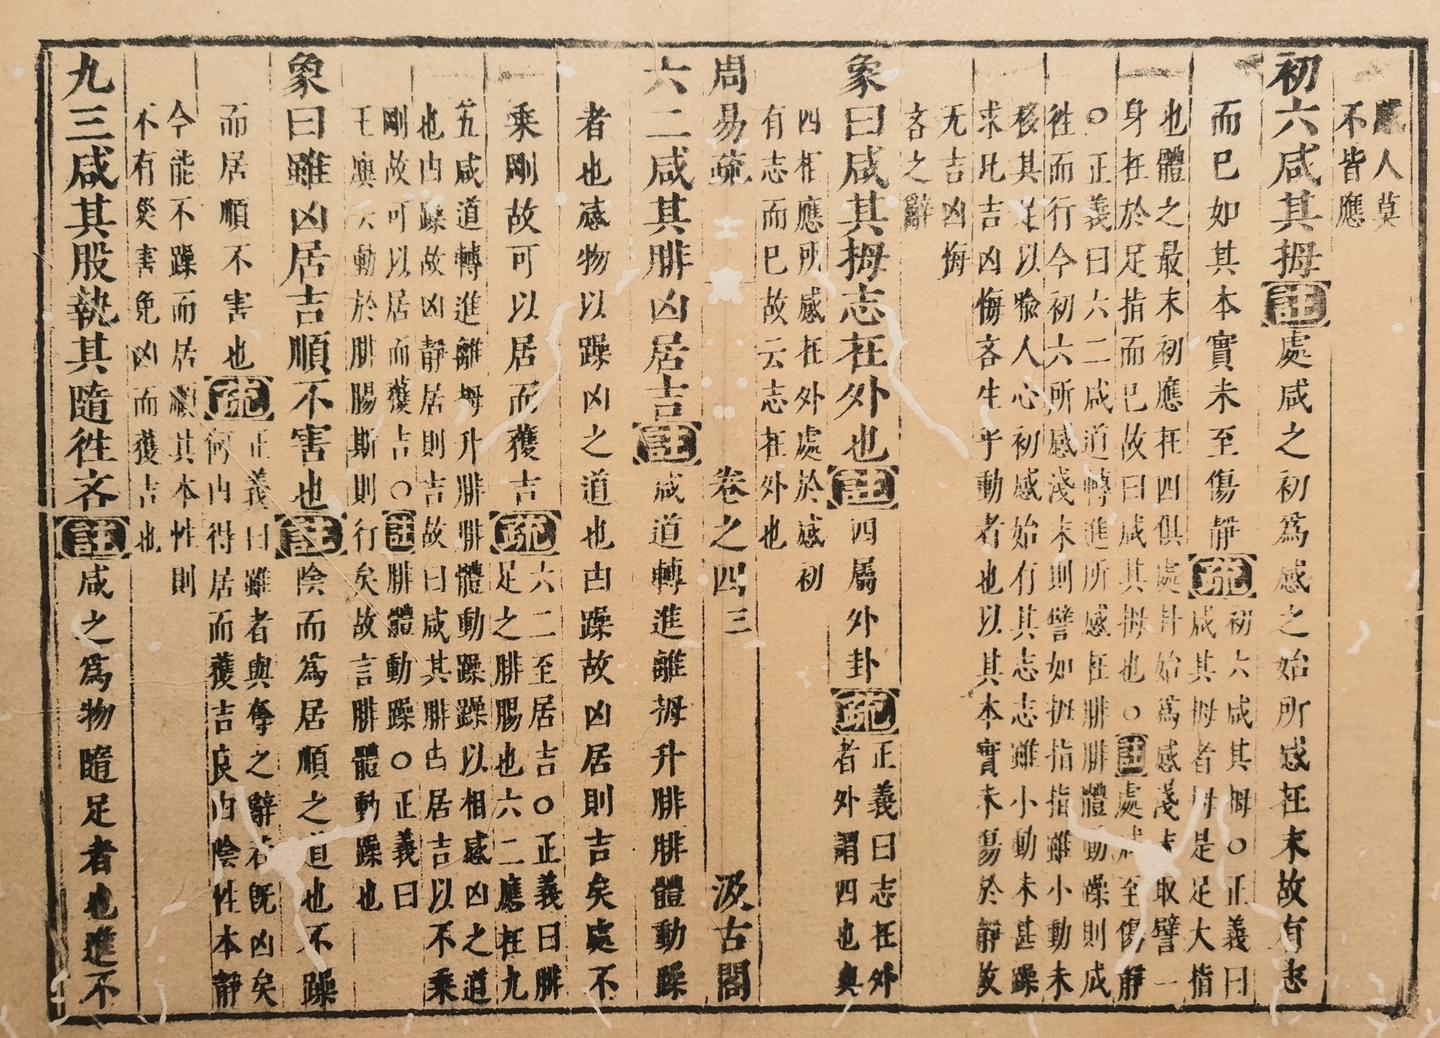 感人莫
不皆應
初六咸其拇註處咸之初爲感之始所感在末故有志
而已如其本實未至傷靜疏
初六咸其拇○正義曰
咸其拇者拇是足大指
也體之最末初應在四俱處卦始爲感淺末取譬一
身在於足指而已故曰咸其拇也○註處咸至傷靜
○正義曰六二咸道轉進所感在腓腓體動躁則成
往而行今初六所感淺末則譬如拇指指雖小動未
移其足以喻人心初感始有其志志雖小動未甚躁
求凡吉凶悔吝生乎動者也以其本實未傷於靜故
无吉凶悔
吝之辭
象曰咸其拇志在外也註四屬外卦疏
正義曰志在外
者外謂四也與
四相應所感在外處於感初
有志而已故云志在外也
周易疏 卷之四 三 汲古閣
六二咸其腓凶居吉註咸道轉進離拇升腓腓體動躁
者也感物以躁凶之道也由躁故凶居則吉矣處不
乘剛故可以居而獲吉疏
六二至居吉○正義曰腓
足之腓腸也六二應在九
五咸道轉進離拇升腓腓體動躁躁以相感凶之道
也由躁故凶靜居則吉故曰咸其腓凶居吉以不乘
剛故可以居而獲吉○註腓體動躁○正義曰
王廙云動於腓腸斯則行矣故言腓體動躁也
象曰雖凶居吉順不害也註陰而爲居順之道也不躁
而居順不害也疏
正義曰雖者與奪之辭若旣凶矣
何由得居而獲吉良由陰性本靜
今能不躁而居順其本性則
不有災害免凶而獲吉也
九三咸其股執其隨往吝註咸之爲物隨足者也進不